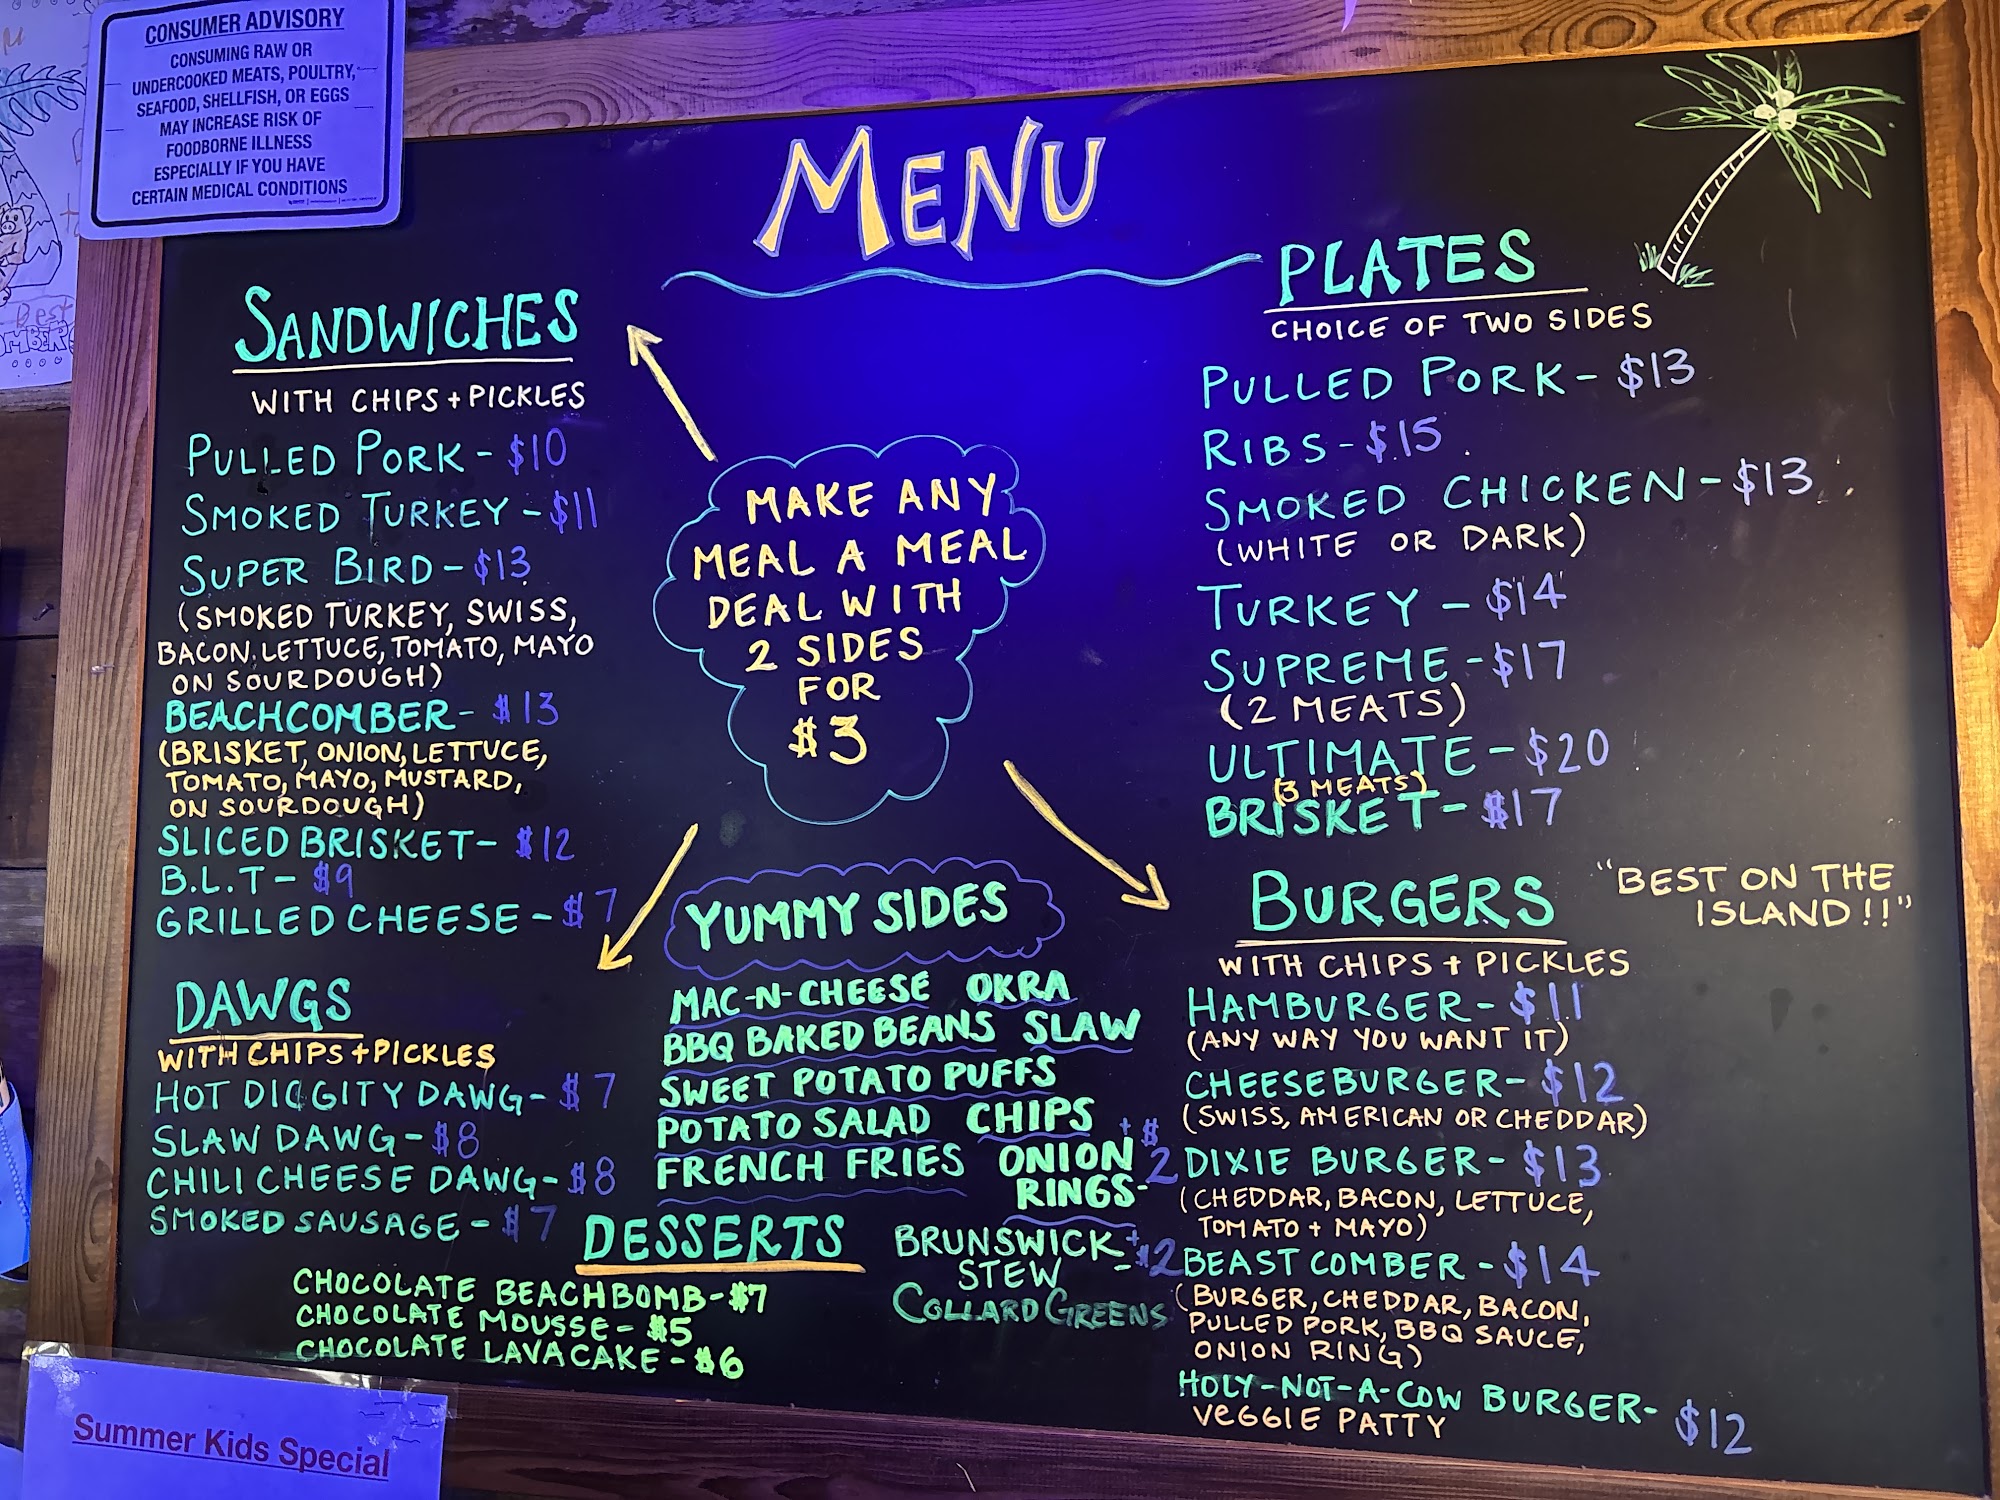 CONSUMER ADVISORY
CONSUMING RAW OR
UNDERCOOKED MEATS, POULTRY,
SEAFOOD, SHELLFISH, OR EGGS
MAY INCREASE RISK OF
FOODBORNE ILLNESS
ESPECIALLY IF YOU HAVE
CERTAIN MEDICAL CONDITIONS
MENU
SANDWICHES
WITH CHIPS + PICKLES
PULLED PORK - $10
SMOKED TURKEY - $11
SUPER BIRD - $13
(SMOKED TURKEY, SWISS,
BACON, LETTUCE, TOMATO, MAYO
ON SOURDOUGH)
BEACHCOMBER - $13
(BRISKET, ONION, LETTUCE,
TOMATO, MAYO, MUSTARD,
ON SOURDOUGH)
SLICED BRISKET - $12
B.L.T - $9
GRILLED CHEESE - $7
DAWGS
WITH CHIPS + PICKLES
HOT DIGGITY DAWG - $7
SLAW DAWG - $8
CHILI CHEESE DAWG - $8
SMOKED SAUSAGE - $7
MAKE ANY
MEAL A MEAL
DEAL WITH
2 SIDES
FOR
$3
YUMMY SIDES
MAC-N-CHEESE OKRA
BBQ BAKED BEANS SLAW
SWEET POTATO PUFFS
POTATO SALAD CHIPS
FRENCH FRIES ONION
RINGS - +$2
BRUNSWICK
STEW - +$2
COLLARD GREENS
DESSERTS
CHOCOLATE BEACHBOMB - $7
CHOCOLATE MOUSSE - $5
CHOCOLATE LAVA CAKE - $6
PLATES
CHOICE OF TWO SIDES
PULLED PORK - $13
RIBS - $15
SMOKED CHICKEN - $13
(WHITE OR DARK)
TURKEY - $14
SUPREME - $17
(2 MEATS)
ULTIMATE - $20
(3 MEATS)
BRISKET - $17
BURGERS
"BEST ON THE
ISLAND!!"
WITH CHIPS + PICKLES
HAMBURGER - $11
(ANY WAY YOU WANT IT)
CHEESEBURGER - $12
(SWISS, AMERICAN OR CHEDDAR)
DIXIE BURGER - $13
(CHEDDAR, BACON, LETTUCE,
TOMATO + MAYO)
BEAST COMBER - $14
(BURGER, CHEDDAR, BACON,
PULLED PORK, BBQ SAUCE,
ONION RING)
HOLY-NOT-A-COW BURGER - $12
VEGGIE PATTY
Summer Kids Special